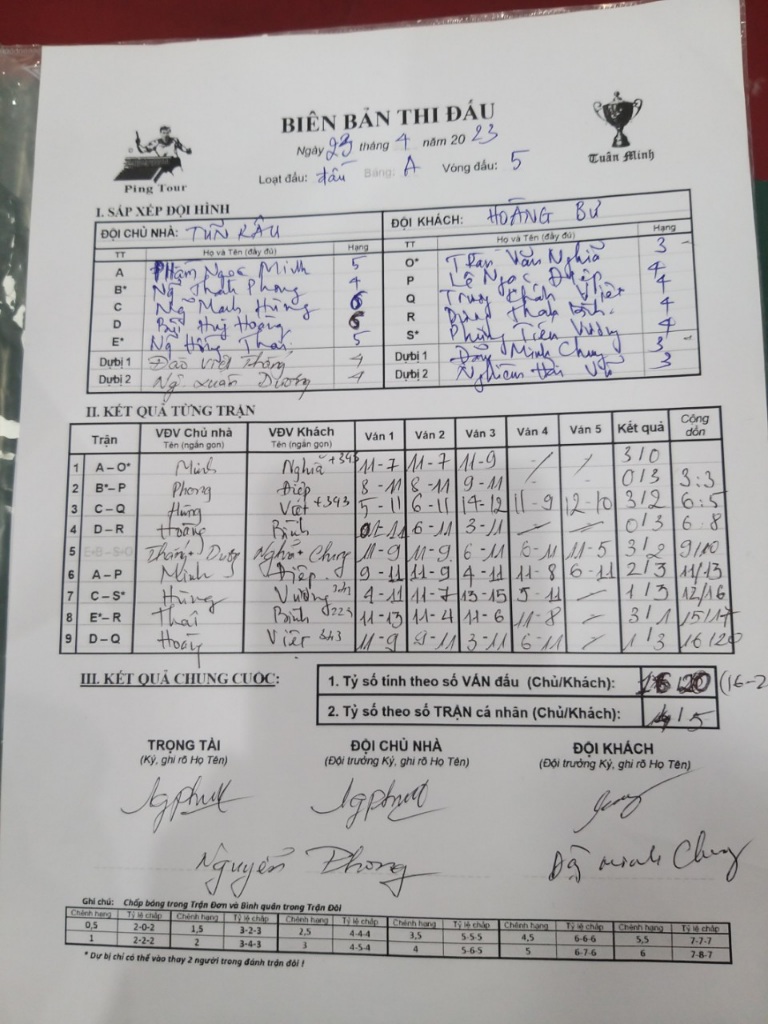 BIÊN BẢN THI ĐẤU
Ping Tour
Tuấn Minh
Ngày 23 tháng 4 năm 2023
Loạt đấu: đấu Bảng: A Vòng đấu: 5
I. SẮP XẾP ĐỘI HÌNH
ĐỘI CHỦ NHÀ: ĐỘI KHÁCH: HOÀNG BƯ
TT Họ và Tên (đầy đủ) Hạng TT Họ và Tên (đầy đủ) Hạng
A Phạm Ngọc Minh 5 O* Trần Văn Nghĩa 3
B* Ng Thanh Phong 4 P Lê Ngọc Điệp 4
C Ngô Mạnh Hùng 6 Q Chính Việt 4
D Bùi Huy Hoàng 6 R Bình 4
E* Ng Hồng Thái 5 S* Phùng Tiến Vương 4
Dự bị 1 Đào Việt Thắng 4 Dự bị 1 Đặng Minh Chung 3
Dự bị 2 Ng. Xuân Dương 4 Dự bị 2 Nghiêm Hải 3
II. KẾT QUẢ TỪNG TRẬN
Trận VĐV Chủ nhà Tên (ngắn gọn) VĐV Khách Tên (ngắn gọn) Ván 1 Ván 2 Ván 3 Ván 4 Ván 5 Kết quả Cộng dồn
1 A – O* Minh Nghĩa +343 11-7 11-7 11-9 / / 3/0
2 B*– P Phong Điệp 8-11 8-11 9-11 0/3 3:3
3 C – Q Hùng Việt +343 5-11 6-11 14-12 11-9 12-10 3/2 6:5
4 D – R Hoàng Bình 6-11 3-11 0/3 6/8
5 E+B – S+O Thắng+ Dương Nghĩa+ Chung 11-9 11-9 6-11 6-11 11-5 3/2 9/10
6 A – P Minh Điệp 9-11 11-9 4-11 11-8 6-11 2/3 11/13
7 C – S* Hùng Vương 343 4-11 11-7 13-15 5-11 / 1/3 12/16
8 E*– R Thái Bình 222 11-13 11-4 11-6 11-8 / 3/1 15/17
9 D – Q Hoàng Việt 343 11-9 9-11 3-11 6-11 / 1/3 16/20
III. KẾT QUẢ CHUNG CUỘC:
1. Tỷ số tính theo số VÁN đấu (Chủ/Khách): 16 20 (16-2
2. Tỷ số theo số TRẬN cá nhân (Chủ/Khách): 4/5
TRỌNG TÀI ĐỘI CHỦ NHÀ ĐỘI KHÁCH
(Ký, ghi rõ Họ Tên) (Đội trưởng Ký, ghi rõ Họ Tên) (Đội trưởng Ký, ghi rõ Họ Tên)
Nguyễn Phong Đặng Minh Chung
Ghi chú: Chấp bóng trong Trận Đơn và Bình quân trong Trận Đôi
Chênh hạng Tỷ lệ chấp Chênh hạng Tỷ lệ chấp Chênh hạng Tỷ lệ chấp Chênh hạng Tỷ lệ chấp Chênh hạng Tỷ lệ chấp Chênh hạng Tỷ lệ chấp
0,5 2-0-2 1,5 3-2-3 2,5 4-4-4 3,5 5-5-5 4,5 6-6-6 5,5 7-7-7
1 2-2-2 2 3-4-3 3 4-5-4 4 5-6-5 5 6-7-6 6 7-8-7
* Dự bị chỉ có thể vào thay 2 người trong đánh trận đôi !